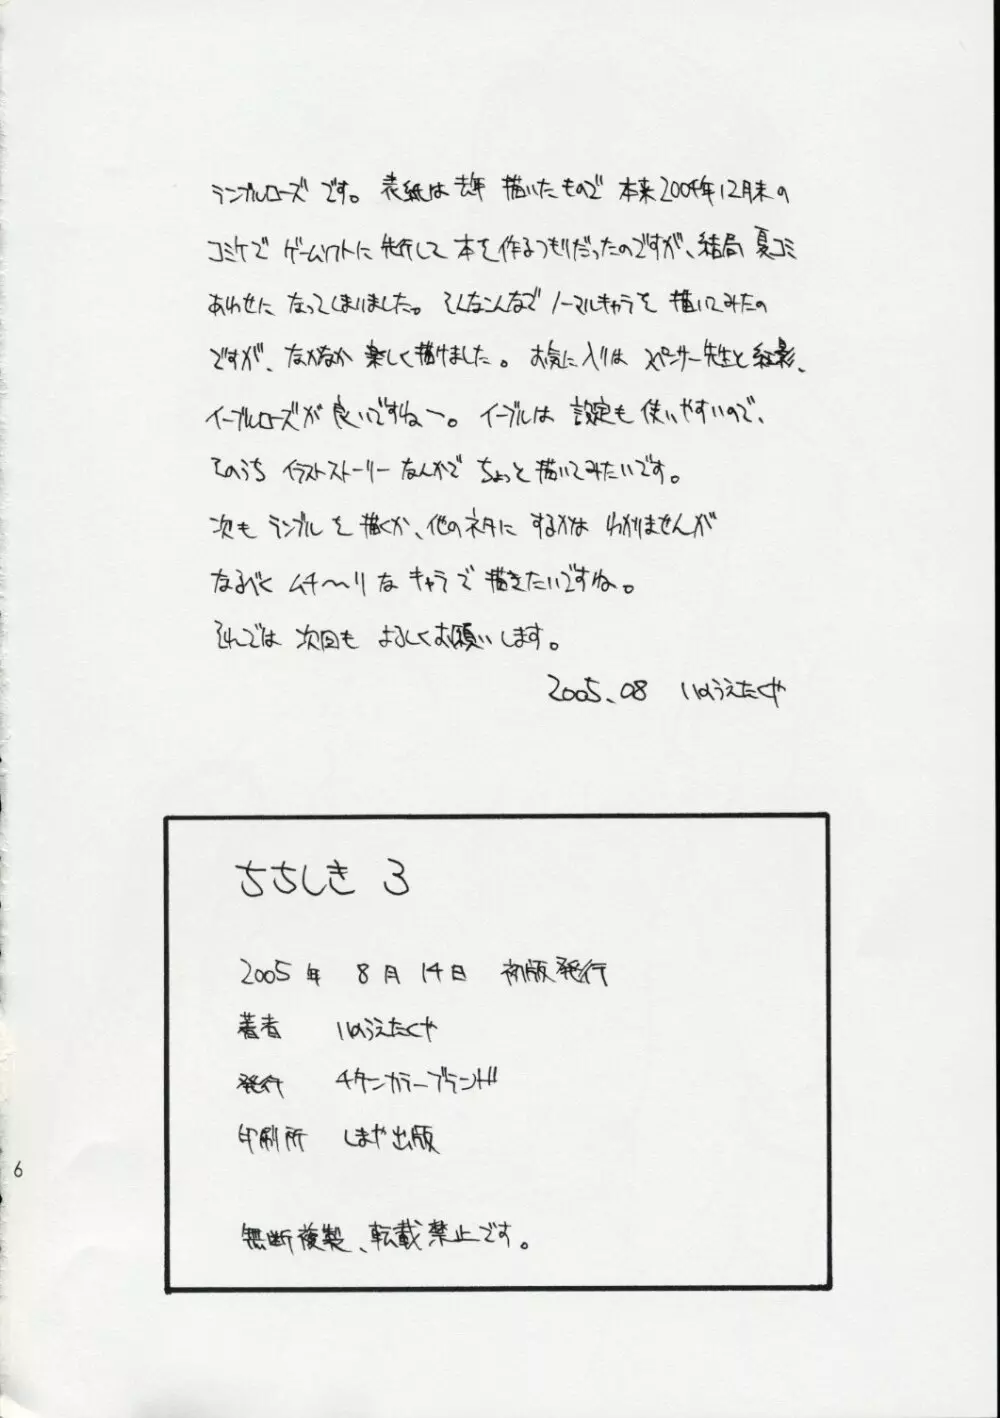 ランブルローズです。表紙は去年描いたもので本来2004年12月末の
コミケでゲームソフトに先行して本を作るつもりだったのですが、結局夏コミ
あわせになってしまいました。そんなこんなでノーマルキャラを描いてみたの
ですが、なかなか楽しく描けました。お気に入りはスペンサー先生と紅影、
イーブルローズが良いですねー。イーブルは設定も使いやすいので、
そのうちイラストストーリーなんかでちょっと描いてみたいです。
次もランブルを描くか、他のネタにするかはわかりませんが
なるべくムチ〜リなキャラで描きたいですね。
それでは次回もよろしくお願いします。
2005.08 いのうえたくや
ちちしき 3
2005年 8月 14日 初版発行
著者 いのうえたくや
発行 チタンカラーブランド
印刷所 しまや出版
無断複製、転載禁止です。
6